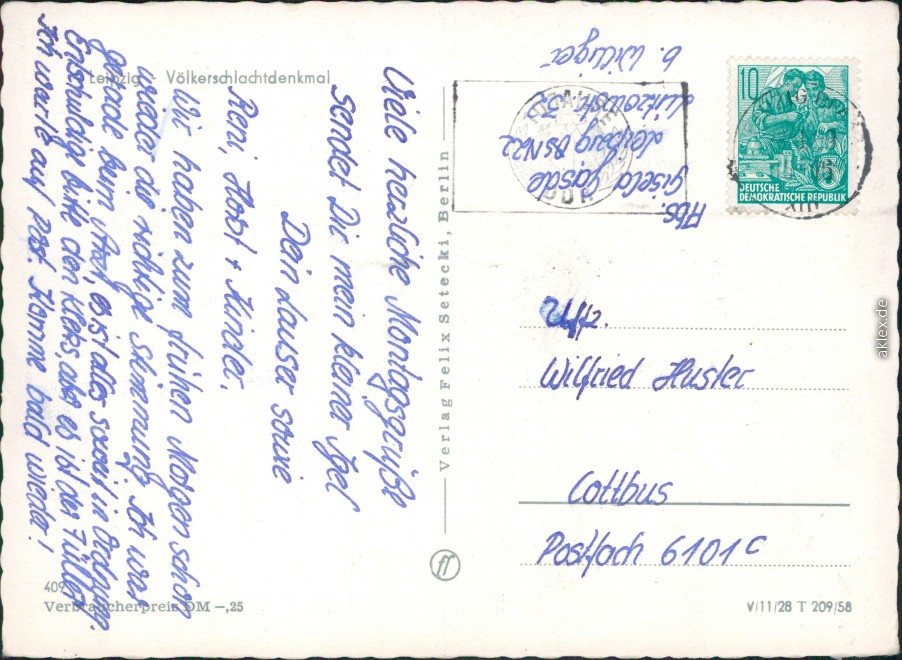 Leipzig - Völkerschlachtdenkmal
Viele herzliche Montagsgrüße
sendet Dir mein kleiner Igel
Dein Lauser sowie
Reni, Horst + Kinder.
Wir haben zum frühen Morgen schon
wieder die richtige Stimmung. Ich war
gerade beim Arzt, es ist alles soweit in Ordnung.
Entschuldige bitte den Kleks, aber es ist der Füller
Ich warte auf Post. Komme bald wieder!
409
Verbraucherpreis DM —,25
Verlag Felix Setecki, Berlin
ff
Abs.
Gisela
Leipzig
b. Williger
DDR
10
DEUTSCHE
DEMOKRATISCHE REPUBLIK
Uffz.
Wilfried Huster
Cottbus
Postfach 6101 C
V/11/28 T 209/58
aklex.de